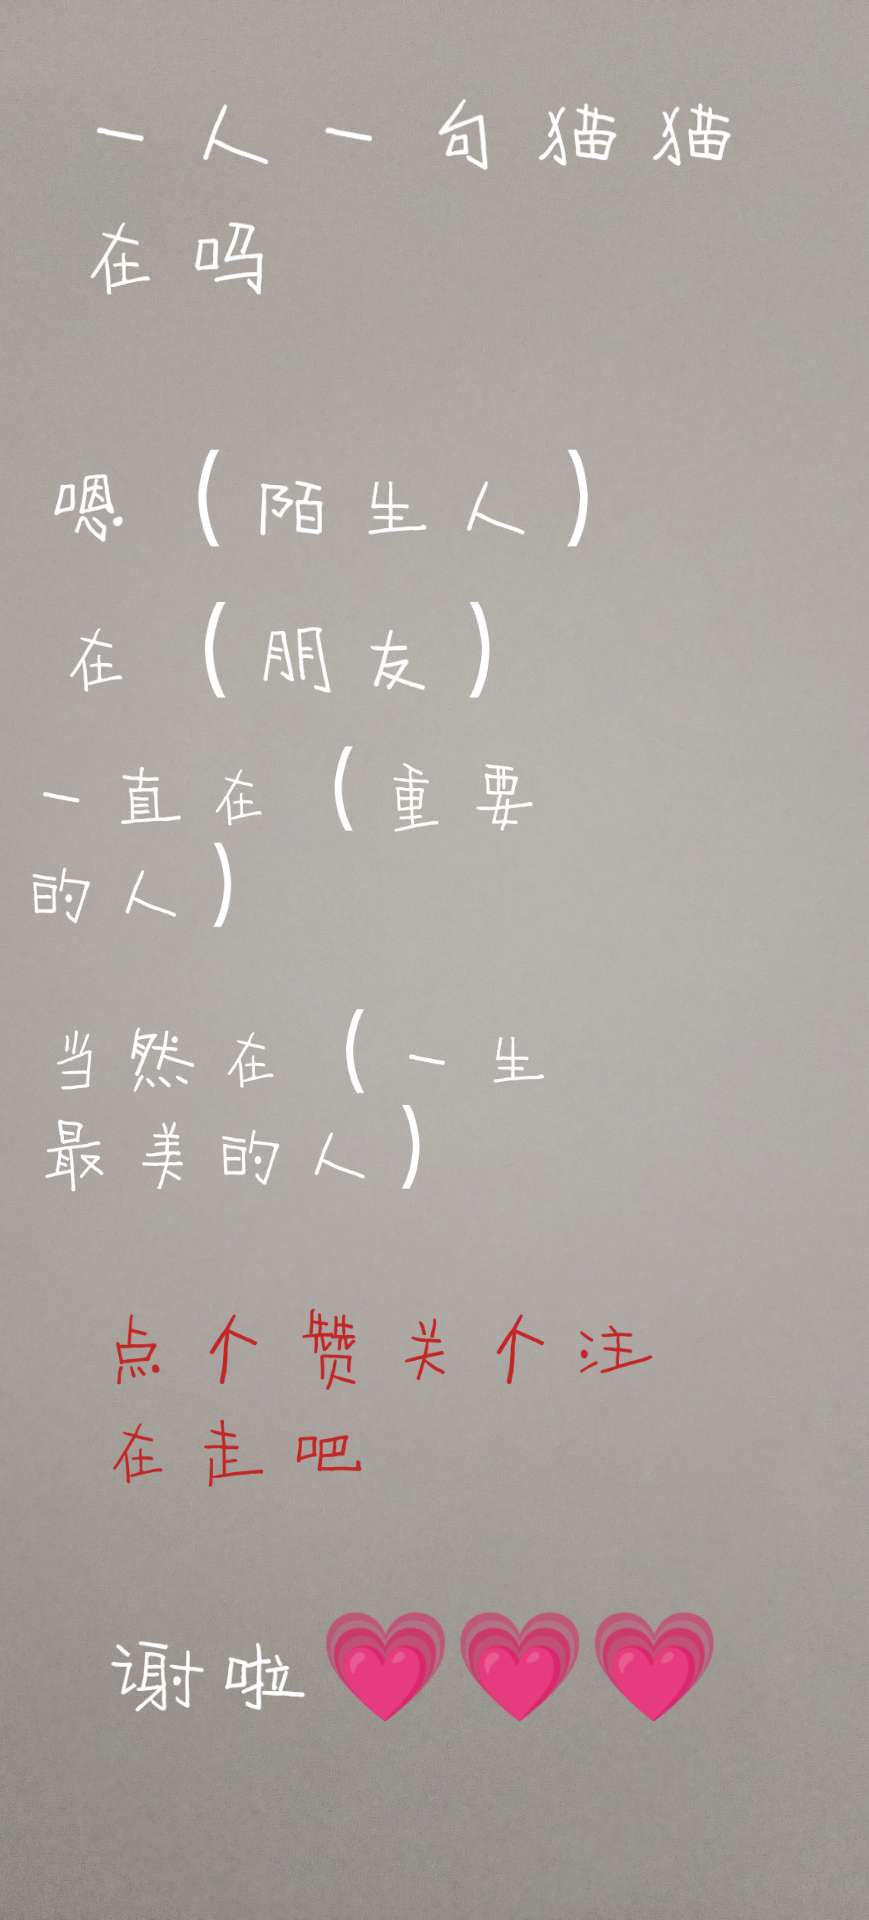 一人一句猫猫
在吗
嗯（陌生人）
在（朋友）
一直在（重要
的人）
当然在（一生
最美的人）
点个赞关个注
在走吧
谢啦💗💗💗